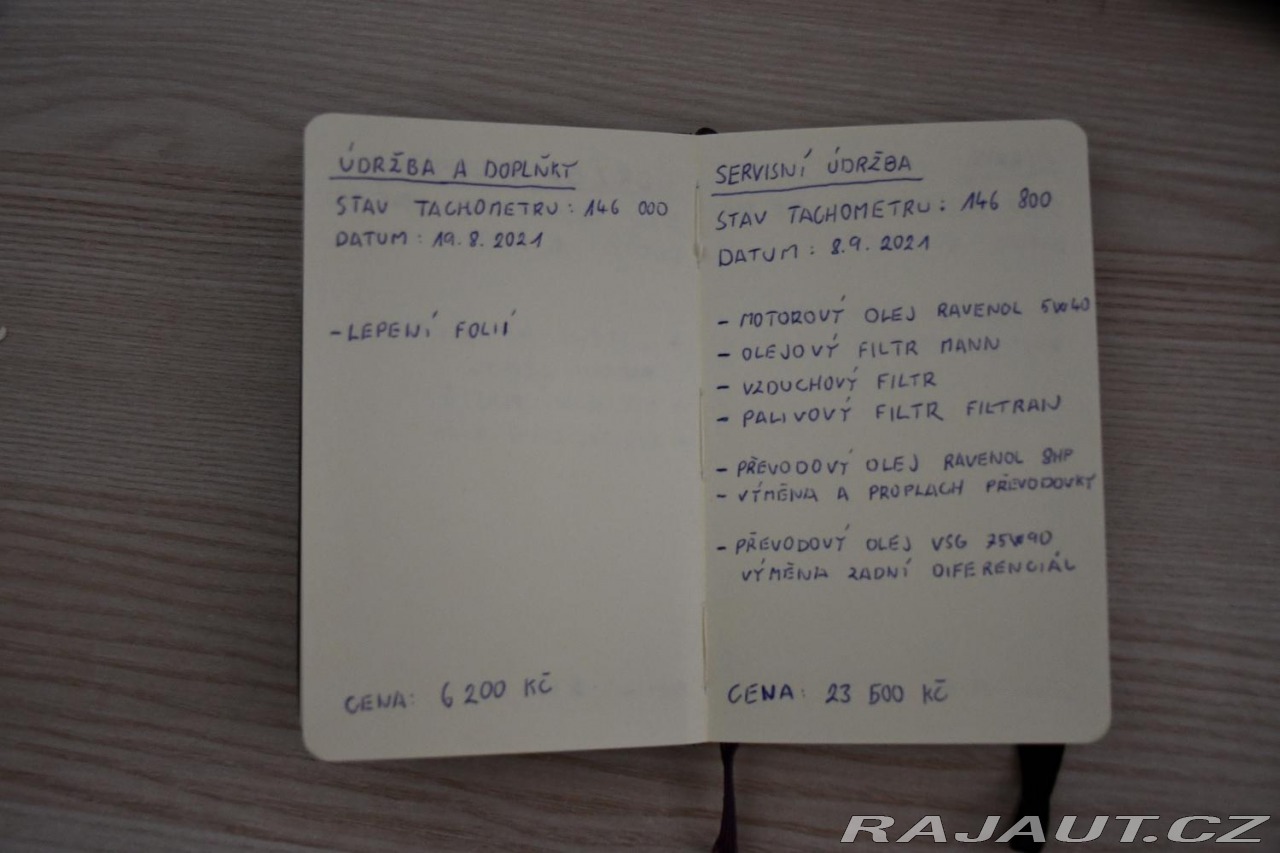 ÚDRŽBA A DOPLŇKY
STAV TACHOMETRU: 146 000
DATUM: 19.8.2021
-LEPENÍ FOLIÍ
CENA: 6 200 KČ
SERVISNÍ ÚDRŽBA
STAV TACHOMETRU: 146 800
DATUM: 8.9.2021
- MOTOROVÝ OLEJ RAVENOL 5W40
- OLEJOVÝ FILTR MANN
- VZDUCHOVÝ FILTR
- PALIVOVÝ FILTR FILTRAN
- PŘEVODOVÝ OLEJ RAVENOL 8HP
- VÝMĚNA A PROPLACH PŘEVODOVKY
- PŘEVODOVÝ OLEJ VSG 75W90
VÝMĚNA ZADNÍ DIFERENCIÁL
CENA: 23 500 KČ
RAJAUT.CZ